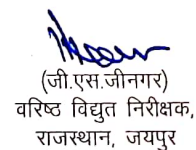 (जी.एस.जीनगर)
वरिष्ठ विद्युत निरीक्षक,
राजस्थान, जयपुर